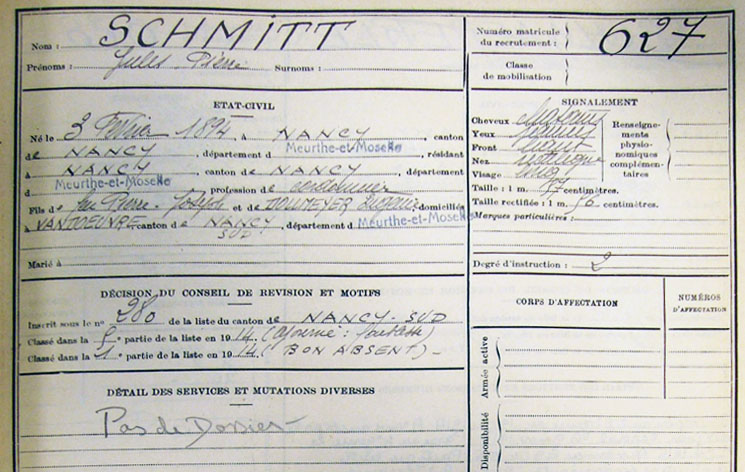 Nom : SCHMITT
Prénoms : Jules Pierre Surnoms :
Numéro matricule
du recrutement : 627
Classe
de mobilisation :
ETAT-CIVIL
Né le 3 1894 à NANCY, canton
de NANCY, département d Meurthe-et-Moselle, résidant
à NANCY, canton de NANCY, département
d Meurthe-et-Moselle, profession de
Fils de feu Pierre-Joseph et de, domiciliés
à VANDOEUVRE, canton de NANCY SUD, département d Meurthe-et-Moselle
Marié à
SIGNALEMENT
Cheveux
Yeux
Front
Nez
Visage
Taille : 1 m. centimètres.
Taille rectifiée : 1 m. 56 centimètres.
Marques particulières :
Renseigne-
ments
physio-
nomiques
complémen-
taires
Degré d'instruction : 2
DÉCISION DU CONSEIL DE REVISION ET MOTIFS
Inscrit sous le nº 280 de la liste du canton de NANCY-SUD
Classé dans la 5e partie de la liste en 1914 (Ajourné :
Classé dans la 1e partie de la liste en 1914 ( BON ABSENT) -
DÉTAIL DES SERVICES ET MUTATIONS DIVERSES
Pas de Dossier
CORPS D'AFFECTATION
NUMÉROS
D'AFFECTATION
Armée active
Disponibilité